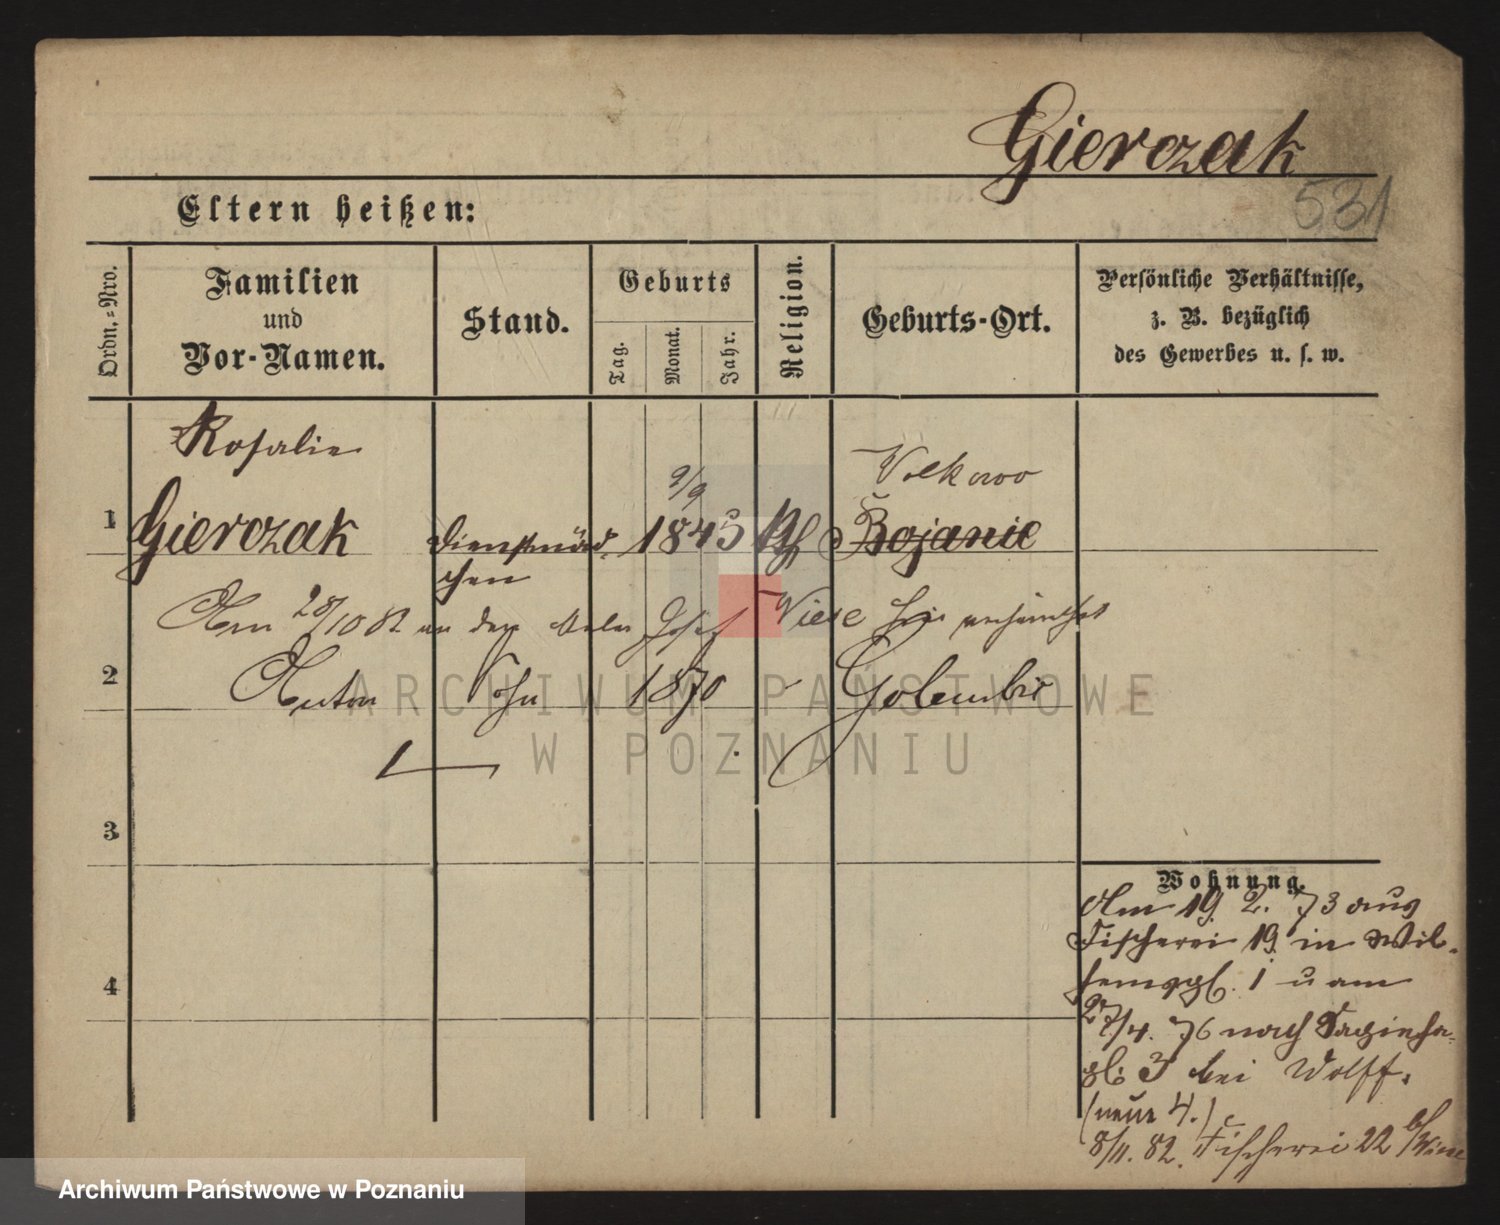 Gierczak
531
Eltern heißen:
Ordn.-Nro.
Familien
und
Vor-Namen.
Stand.
Geburts
Tag.
Monat.
Jahr.
Religion.
Geburts-Ort.
Persönliche Verhältnisse,
z. B. bezüglich
des Gewerbes u. s. w.
Rosalie
9/9
Volkowo
1
Gierczak
Dienstmäd-
chen
1845
Kth
Bojanic
Am 28/10 82 an den Josef Wiese hier verheirathet
2
Anton
Sohn
1870
Golembic
3
4
Wohnung.
Am 19. 2. 73 aus
Fischerei 19 in Wil-
helmspl. 1 u am
27/4. 76 nach Sapieha-
pl. 3 bei Wolff.
(neue 4.)
8/11. 82. Fischerei 22 b/Wiese
ARCHIWUM PAŃSTWOWE
W POZNANIU
Archiwum Państwowe w Poznaniu